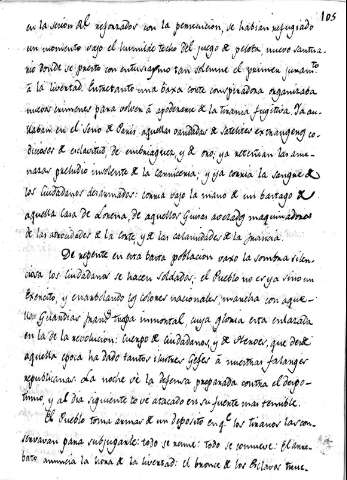 105
en la sesion Rl reforzados con la persecucion, se habian refugiado
un momento vajo el humilde techo del juego de pelota, nuevo santua-
rio donde se presto con entusiasmo tan solemne el primer juramto
à la libertad. Entretanto una baxa corte conspiradora organizaba
nuevos crimenes para volver à apoderarse de la tirania fugitiva. Ya au-
llaban en el seno de Paris aquellas vandadas de satelites extrangeros co-
diciosos de esclavitud, de embriaguez, y de oro; ya retenian las ame-
nazas preludio insolente de la carniceria; y ya corria la sangre de
los Ciudadanos desarmados: corria vajo la mano de un bastago de
aquella Casa de Lorena, de aquellos Guisas avezados maquinadores
de las atrocidades de la Corte, y de las calamidades de la Francia.
De repente en esta basta poblacion vaxo la sombra silen-
ciosa los Ciudadanos se hacen soldados; el Pueblo no es ya sino un
Exercito, y enarbolando los colores nacionales, marcha con aque-
llas Guardias tropa inmortal cuya gloria esta enlazada
en la de la revolucion: cuerpo de Ciudadanos, y de Heroes, que desde
aquella epoca ha dado tantos ilustres Gefes à nuestras falanges
republicanas. La noche vé la defensa preparada contra el despo-
tismo, y al dia siguiente se vé atacado en su fuente mas temible.
El Pueblo toma armas de un deposito en qe los tiranos las con-
servavan para subjugarle: todo se reune: todo se conmueve: El arre-
bato anuncia la hora de la libertad: el bronce de los Esclavos true-